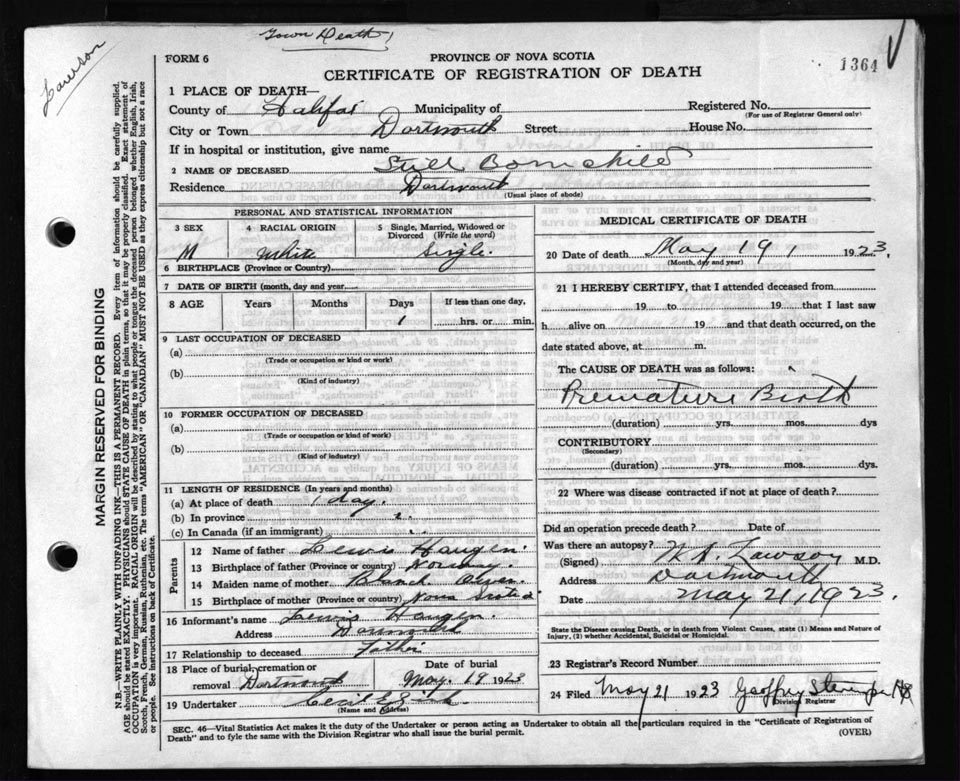 Town Death
Lawson
FORM 6
PROVINCE OF NOVA SCOTIA
CERTIFICATE OF REGISTRATION OF DEATH
1364
1 PLACE OF DEATH—
County of Halifax Municipality of Registered No.
(For use of Registrar General only)
City or Town Dartmouth Street House No.
If in hospital or institution, give name
2 NAME OF DECEASED Still Born child
Residence Dartmouth
(Usual place of abode)
MARGIN RESERVED FOR BINDING
N.B.—WRITE PLAINLY WITH UNFADING INK—THIS IS A PERMANENT RECORD. Every item of information should be carefully supplied.
AGE should be stated EXACTLY. PHYSICIANS should STATE CAUSE OF DEATH in plain terms, so that it may be properly classified. Exact statement of
OCCUPATION is very important. RACIAL ORIGIN will be described by stating to what people or tongue the deceased person belonged whether English, Irish,
Scotch, French, German, Russian, Ruthenian, etc. The terms "AMERICAN" OR "CANADIAN" MUST NOT BE USED as they express citizenship but not a race
or people. See instructions on back of Certificate.
PERSONAL AND STATISTICAL INFORMATION
3 SEX 4 RACIAL ORIGIN 5 Single, Married, Widowed or
Divorced (Write the word)
M White Single.
6 BIRTHPLACE (Province or Country)
7 DATE OF BIRTH (month, day and year
8 AGE Years Months Days If less than one day,
1 hrs. or min.
9 LAST OCCUPATION OF DECEASED
(a)
(Trade or occupation or kind or work)
(b)
(Kind of industry)
10 FORMER OCCUPATION OF DECEASED
(a)
(Trade or occupation or kind of work)
(b)
(Kind of industry)
11 LENGTH OF RESIDENCE (In years and months)
(a) At place of death 1 day.
(b) In province
(c) In Canada (if an immigrant)
Parents
12 Name of father Lewis Haugen.
13 Birthplace of father (Province or country) Norway.
14 Maiden name of mother Blanch
15 Birthplace of mother (Province or country) Nova Scotia
16 Informant's name Lewis Haugen.
Address Dartmouth
17 Relationship to deceased Father
18 Place of burial, cremation or Date of burial
removal Dartmouth May. 19 1923
19 Undertaker Cecil E
(Name and address)
MEDICAL CERTIFICATE OF DEATH
20 Date of death May 19, 1923,
(Month, day and year)
21 I HEREBY CERTIFY, that I attended deceased from
19 to 19 that I last saw
h alive on 19 and that death occurred, on the
date stated above, at m.
The CAUSE OF DEATH was as follows:
Premature Birth
(duration) yrs. mos. dys
CONTRIBUTORY
(Secondary)
(duration) yrs. mos. dys.
22 Where was disease contracted if not at place of death?
Did an operation precede death? Date of
Was there an autopsy?
(Signed) Lawson M.D.
Address Dartmouth
Date May 21, 1923.
State the Disease causing Death, or in death from Violent Causes, state (1) Means and Nature of
Injury, (2) whether Accidental, Suicidal or Homicidal.
23 Registrar's Record Number
24 Filed May 21 1923 Geoffrey
Division Registrar
SEC. 46—Vital Statistics Act makes it the duty of the Undertaker or person acting as Undertaker to obtain all the particulars required in the "Certificate of Registration of
Death" and to fyle the same with the Division Registrar who shall issue the burial permit.
(OVER)